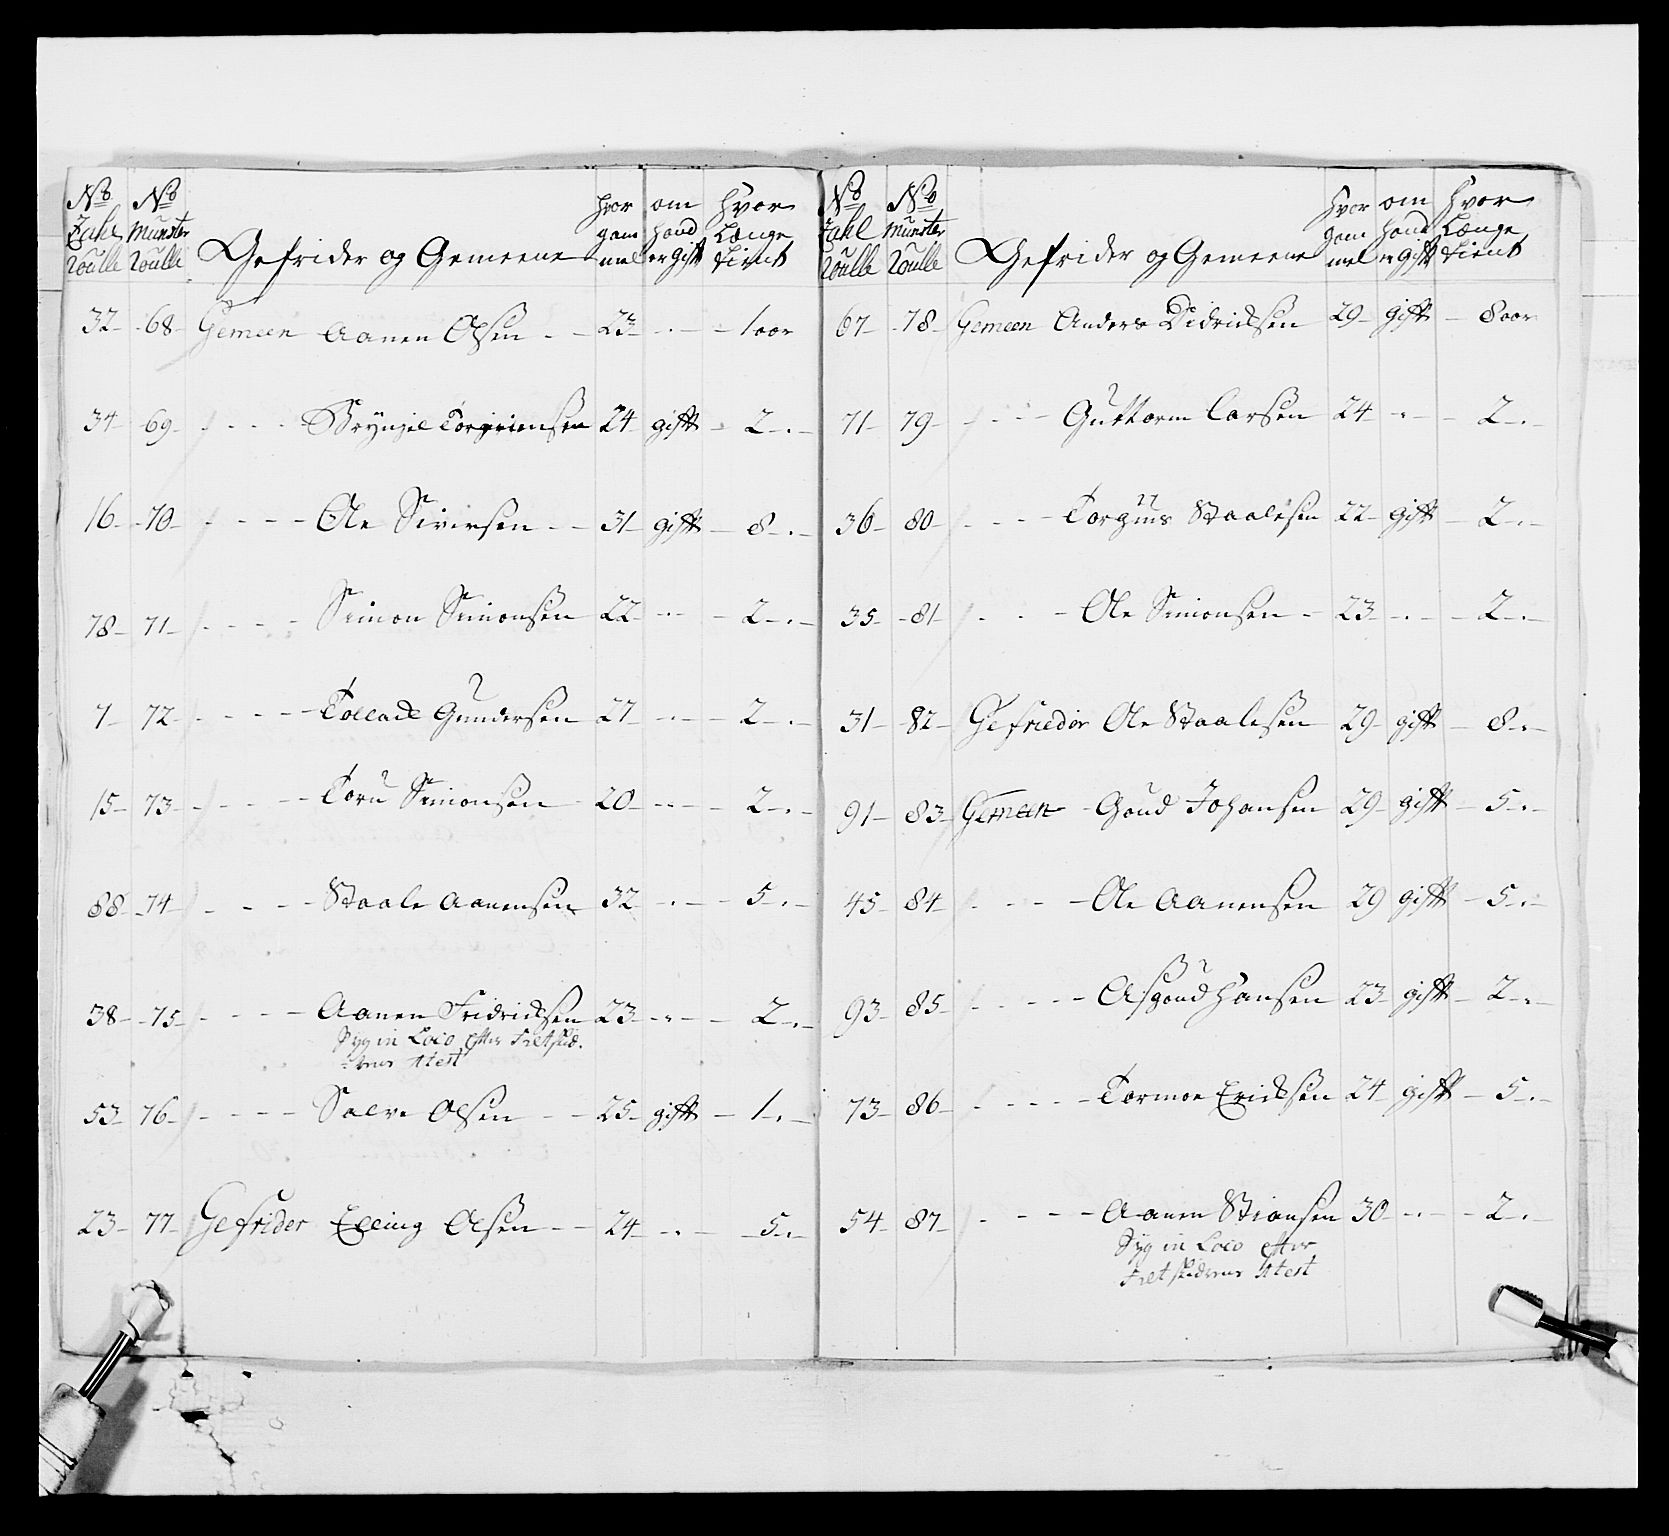 No No hvor om hvor
Zahl Munster gam hand Længe
Roulle Roulle Gefrider og Gemeene mel er Gift tient
32 - 68 - Gemeen Aanen Olsen - - 23 - . - - 1 aar
34 69 - - - - Brynjel Torgriemsen 24 gift - 2 - . -
16 - 70 - - - - Ole Sivirsen - - 31 gift - 8 - . -
78 - 71 - - - - Simon Simonsen 22 - . - - 2 - . -
7 - 72 - - - - Tollack Gundersen 27 - . - - 2 - . -
15 - 73 - - - - Toru Simonsen 20 - . - - 2 - . -
88 - 74 - - - - Staale Aanensen 32 - . - - 5 - . -
38 - 75 - - - - Aanen Fridricksen 23 - . - - 2 - . -
Syg in Loco efter Feltskiæ-
-rens Atest
53 - 76 - - - - Salve Olsen - - 25 - gift - 1 - . -
23 - 77 - Gefrider Elling Olsen - - 24 - . - - 5 - . -
No No hvor om hvor
Zahl Munster gam hand Længe
Roulle Roulle Gefrider og Gemeene mel er Gift tient
67 - 78 - Gemeen Anders Didricksen 29 - gift - 8 aar
71 - 79 - - - - Guttorm Larsen 24 - . - 2 - . -
36 - 80 - - - - Torgius Staalesen 22 - gift - 2 - . -
35 - 81 - - - - Ole Simonsen - 23 - . - - 2 - . -
31 - 82 - Gefrieder Ole Staalesen 29 - gift - 8 - . -
91 - 83 - Gemeen - Goud Johansen 29 gift - 5 - . -
45 - 84 - - - - Ole Aanensen 29 gift - 5 - . -
93 - 85 - - - - Asgoud Hansen 23 gift - 2 - . -
73 - 86 - - - - Tormoe Ericksen 24 gift - 5 - . -
54 - 87 - - - - Aanen Stiansen 30 - . - - 2 - . -
Syg in Loco efter
Feltskiærens Atest